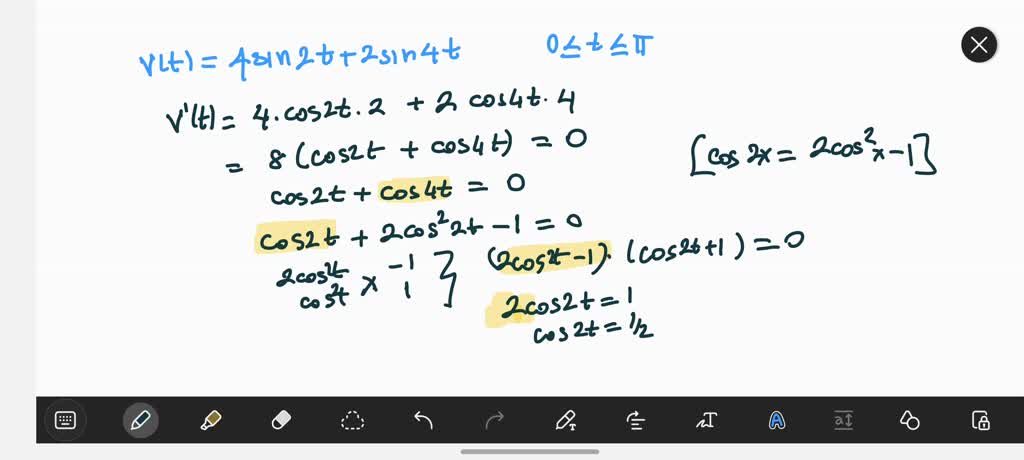 v(t) = 4sin2t+2sin4t 0≤t≤π
v'(t) = 4.cos2t.2 + 2 cos4t.4
= 8 (cos2t + cos4t) = 0
[cos 2x = 2cos²x-1]
cos2t + cos4t = 0
cos2t + 2cos²2t -1 = 0
2cos2t -1
cos2t × 1
(2cos2t-1). (cos2t+1) = 0
2cos2t = 1
cos2t = 1/2